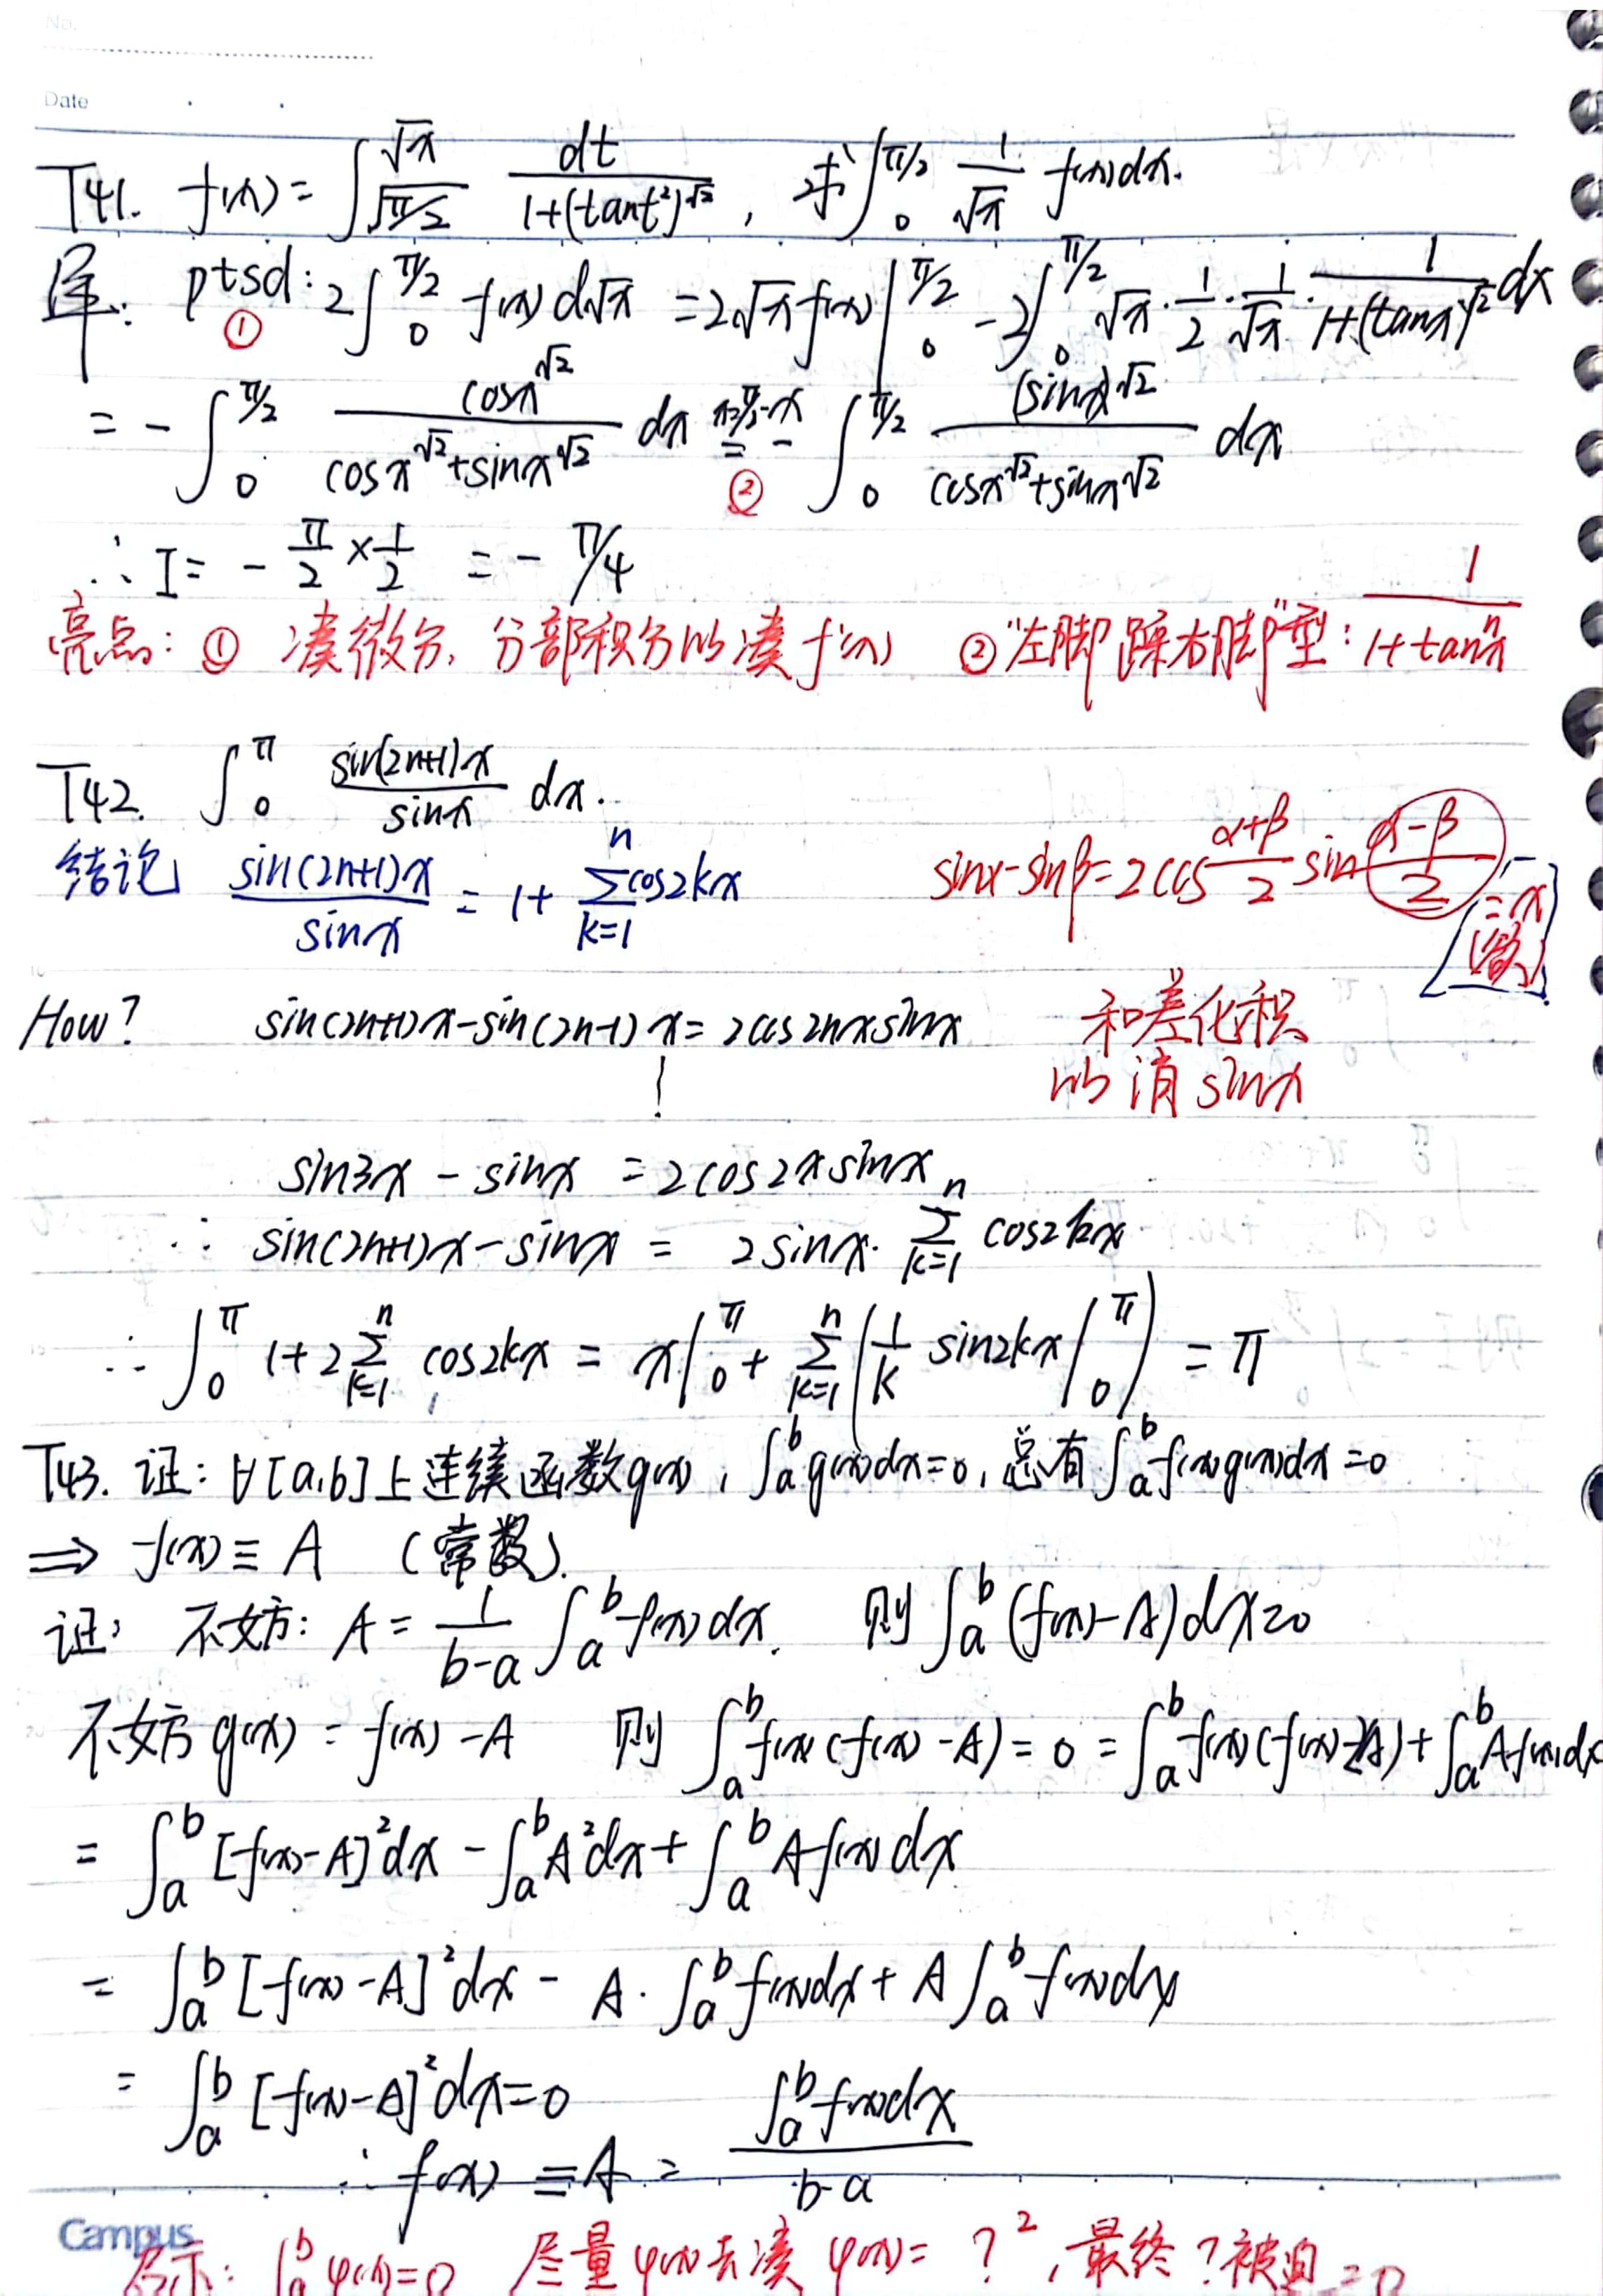 No.
Date
T41. f(x)=∫_{√(π/2)}^{√x} dt/(1+(tant²)^√2), 求∫_0^{π/2} 1/√x f(x)dx.
解: ptsd: 2∫_0^{π/2} f(x)d√x =2√x f(x)|_0^{π/2} -2∫_0^{π/2} √x·1/2·1/√x·1/(1+(tanx)^√2) dx
①
= -∫_0^{π/2} cosx^√2/(cosx^√2+sinx^√2) dx = -∫_0^{π/2} (sinx)^√2/(cosx^√2+sinx^√2) dx
②
∴ I= -π/2×1/2 = -π/4
亮点: ① 凑微分, 分部积分以凑f'(x) ②"左脚踩右脚"型: 1/(1+tanⁿx)
T42. ∫_0^π sin(2n+1)x/sinx dx.
结论 sin(2n+1)x/sinx = 1+ Σ_{k=1}^n cos2kx
sinα-sinβ=2cos (α+β)/2 sin (α-β)/2
=x
How? sin(2n+1)x-sin(2n-1)x=2cos2nxsinx
和差化积
以消sinx
sin3x - sinx =2cos2xsinx
∴ sin(2n+1)x-sinx = 2sinx·Σ_{k=1}^n cos2kx
∴ ∫_0^π 1+2Σ_{k=1}^n cos2kx = x|_0^π + Σ_{k=1}^n (1/k sin2kx|_0^π) = π
T43. 证: ∀[a,b]上连续函数g(x), ∫_a^b g(x)dx=0, 总有∫_a^b f(x)g(x)dx=0
⇒ f(x)≡A (常数).
证: 不妨: A= 1/(b-a) ∫_a^b f(x)dx. 则∫_a^b (f(x)-A)dx=0
不妨g(x)=f(x)-A 则 ∫_a^b f(x)(f(x)-A)=0=∫_a^b f(x)(f(x)-2A)+∫_a^b Af(x)dx
= ∫_a^b [f(x)-A]²dx -∫_a^b A²dx+∫_a^b Af(x)dx
= ∫_a^b [f(x)-A]²dx - A·∫_a^b f(x)dx+A∫_a^b f(x)dx
= ∫_a^b [f(x)-A]²dx=0
∴ f(x)≡A= ∫_a^b f(x)dx/(b-a)
Campus
启示: ∫_a^b φ(x)=0 尽量φ(x)去凑φ(x)= ?², 最终?被迫=0